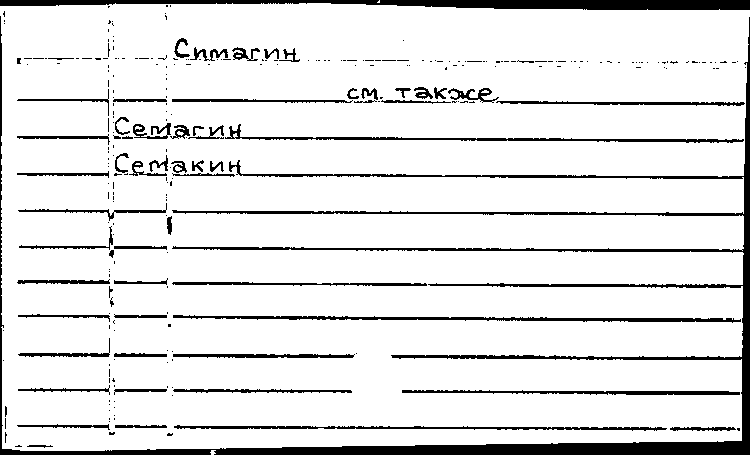 Симагин
см. также
Семагин
Семакин